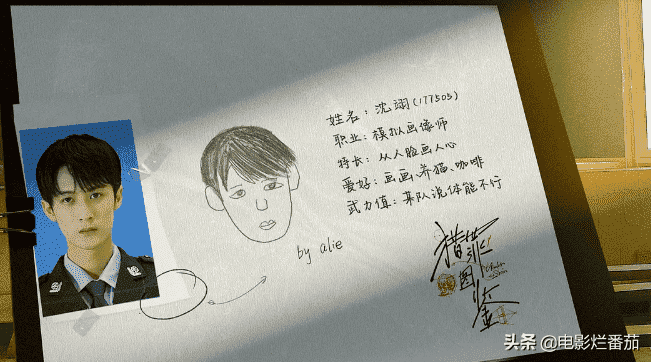 姓名：沈翊(177503)
职业：模拟画像师
特长：从人脸画人心
爱好：画画、养猫、咖啡
武力值：某队说体能不行
by alie
猎罪图鉴
头条 @电影烂番茄